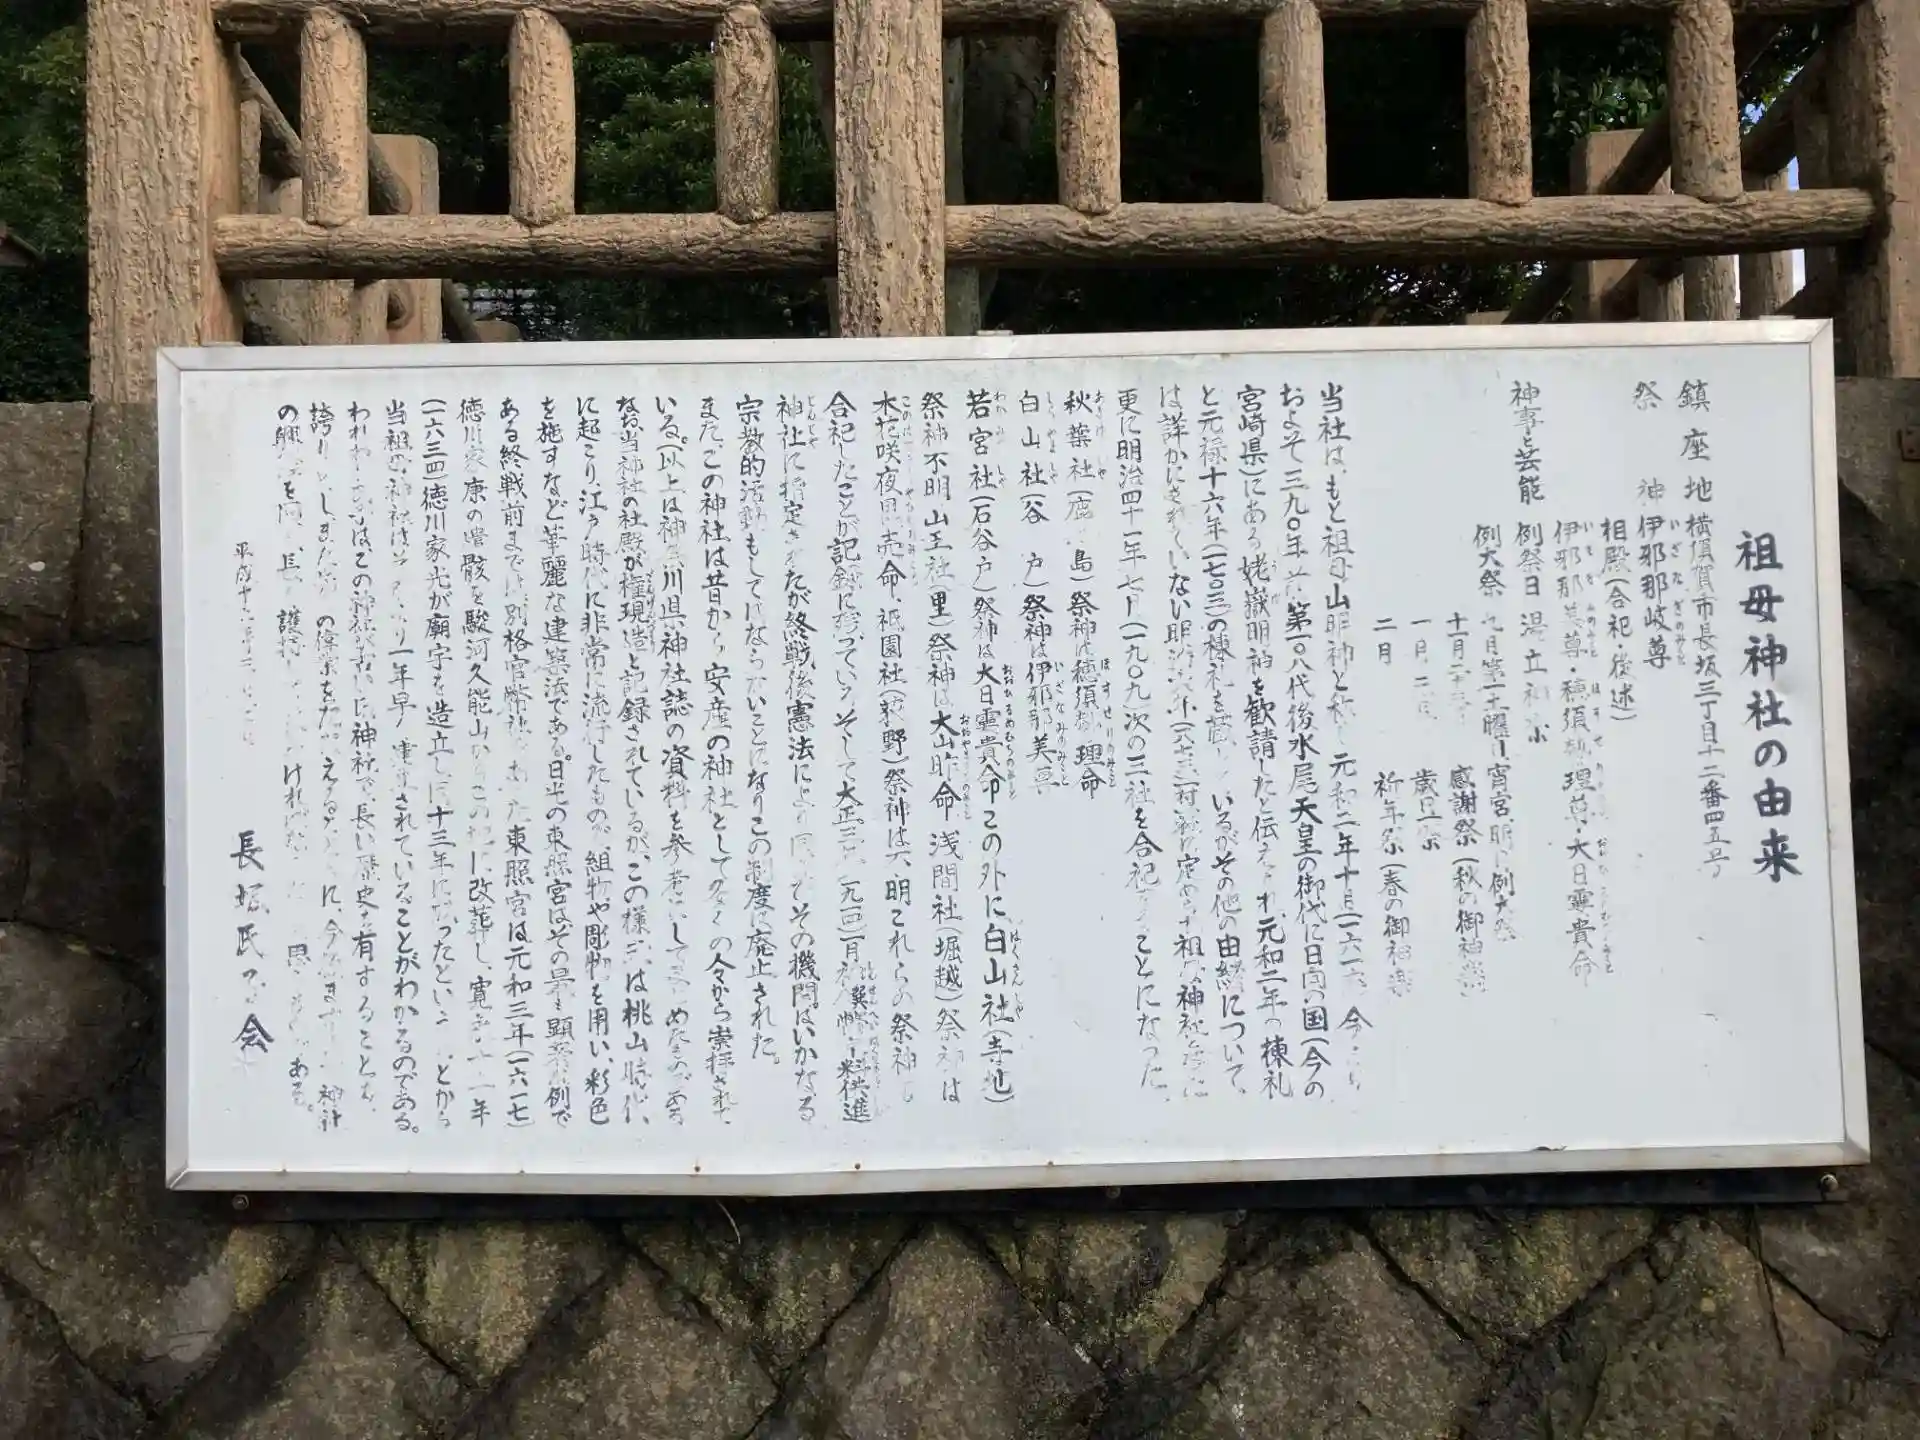 祖母神社の由来
鎮座地 横須賀市長坂三丁目十二番四五号
祭神 伊邪那岐尊
相殿(合祀・後述)
伊邪那美尊・穂須勢理尊・大日孁貴命
神事と芸能
例祭日 湯立神楽
例大祭 九月第一土曜日宵宮、明日例大祭
十一月二十三日 感謝祭(秋の御神楽)
一月一日 歳旦祭
二月 祈年祭(春の御神楽)
当社は、もと祖母山明神と称し元和二年十月(一六一六)今より
およそ三九〇年前第一〇八代後水尾天皇の御代に日向の国(今の
宮崎県)にある姥嶽明神を歓請したと伝えられ、元和二年の棟札
と元禄十六年(一七〇三)の棟札を蔵しているがその他の由緒について、
は詳かにされていない明治六年(一八七三)村社に定められ祖母神社
更に明治四十一年七月(一九〇九)次の三社を合祀することになった。
秋葉社(鹿島)祭神は穂須勢理命
白山社(谷戸)祭神は伊邪那美尊
若宮社(石谷戸)祭神は大日孁貴命この外に白山社(寺地)
祭神不明山王社(里)祭神は大山咋命浅間社(堀越)祭神は
木花咲夜毘売命、祇園社(萩野)祭神は不明これらの祭神も
合祀したことが記録に残っているそして大正三年(一九一四)一月神饌幣帛料供進
神社に指定されたが終戦後憲法により国及びその機関はいかなる
宗教的活動もしてはならないことになりこの制度は廃止された。
また、この神社は昔から安産の神社として多くの人々から崇拝されて
いる。(以上は神奈川県神社誌の資料を参考にしてまとめたものである
なお、当神社の社殿が権現造と記録されているが、この様式は桃山時代、
に起こり、江戸時代に非常に流行したもので、組物や彫物を用い、彩色
を施すなど華麗な建築法である。日光の東照宮はその最も顕著な例で
ある終戦前までは別格官幣社であった東照宮は元和三年(一六一七)
徳川家康の遺骸を駿河久能山からこの地に改葬し、寛永十一年
(一六三四)徳川家光が廟宇を造立し同十三年になったということから
当祖母神社はそれより一年早く建立されていることがわかるのである。
われわれ は、この神社が に神社で長い歴史を有することを、
誇りとし、また の偉業をたたえるとともに、今 神社
の興隆を 護持 ければならないと思う ある。
平成十六年
長坂氏子会